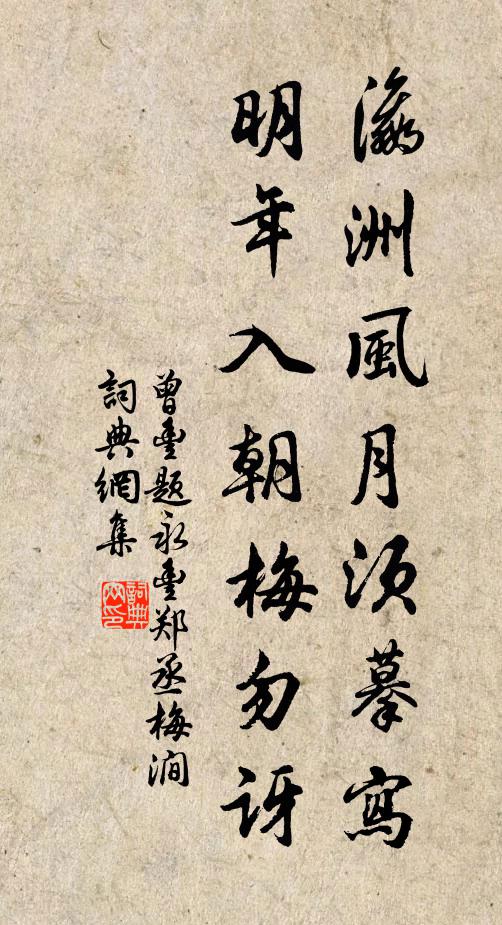 瀛洲風月須摹寫
明年入朝梅勿訝
曾豊題永豊郑丞梅澗
詞典網集
詞典網印